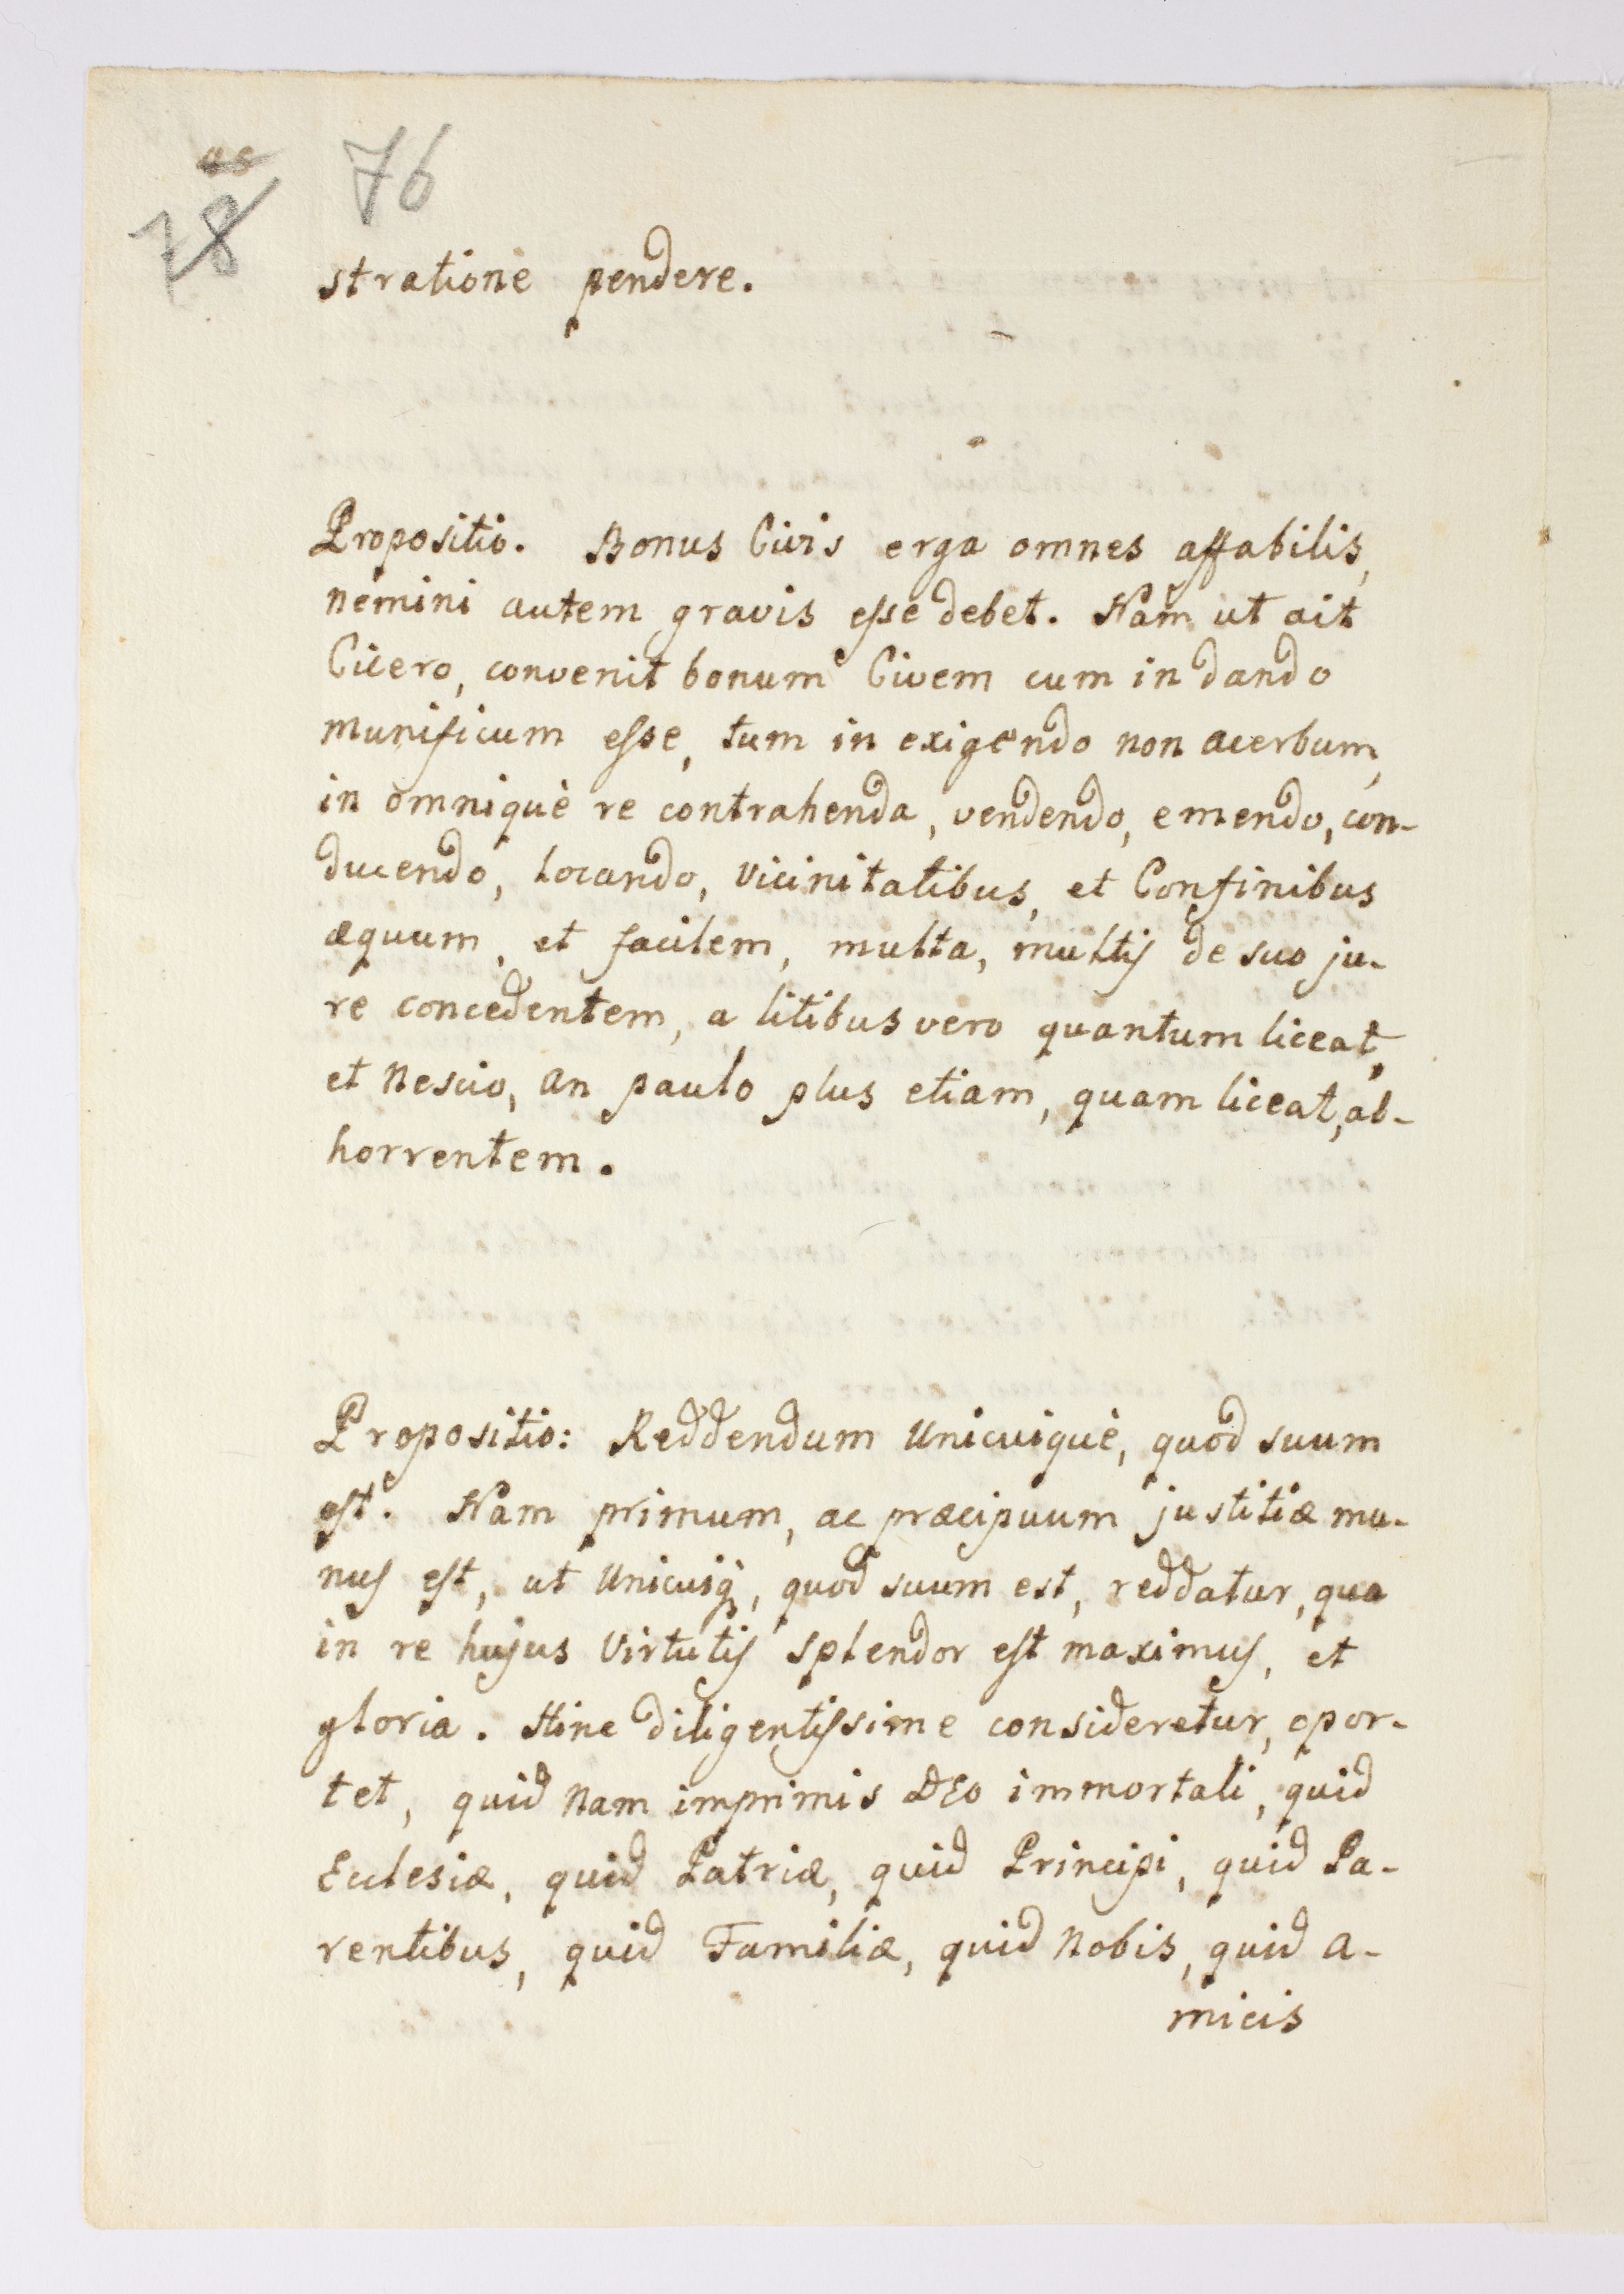 76
78
strationè pendere.
Propositio. Bonus Civis erga omnes affabilis,
nemini autem gravis esse debet. Nam ut ait
Cicero, convenit bonum Civem cum in dando
munificum esse, tum in exigendo non acerbum,
in omniquè re contrahenda, vendendo, emendo, con-
ducendo, locando, vicinitatibus, et Confinibus
æquum, et facilem, multa, multis de suo ju-
re concedentem, a litibus vero quantum liceat,
et nescio, an paulo plus etiam, quam liceat, ab-
horrentem.
Propositio: Reddendum Unicuiquè, quod suum
est. Nam primum, ac præcipuum justitiæ mu-
nus est, ut Unicuiq, quod suum est, reddatur, qua
in re hujus Virtutis splendor est maximus, et
gloria. Hinc diligentissime consideretur, opor-
tet, quid nam imprimis DEo immortali, quid
Ecclesiæ, quid Patriæ, quid Principi, quid Pa-
rentibus, quid Familiæ, quid nobis, quid a-
micis